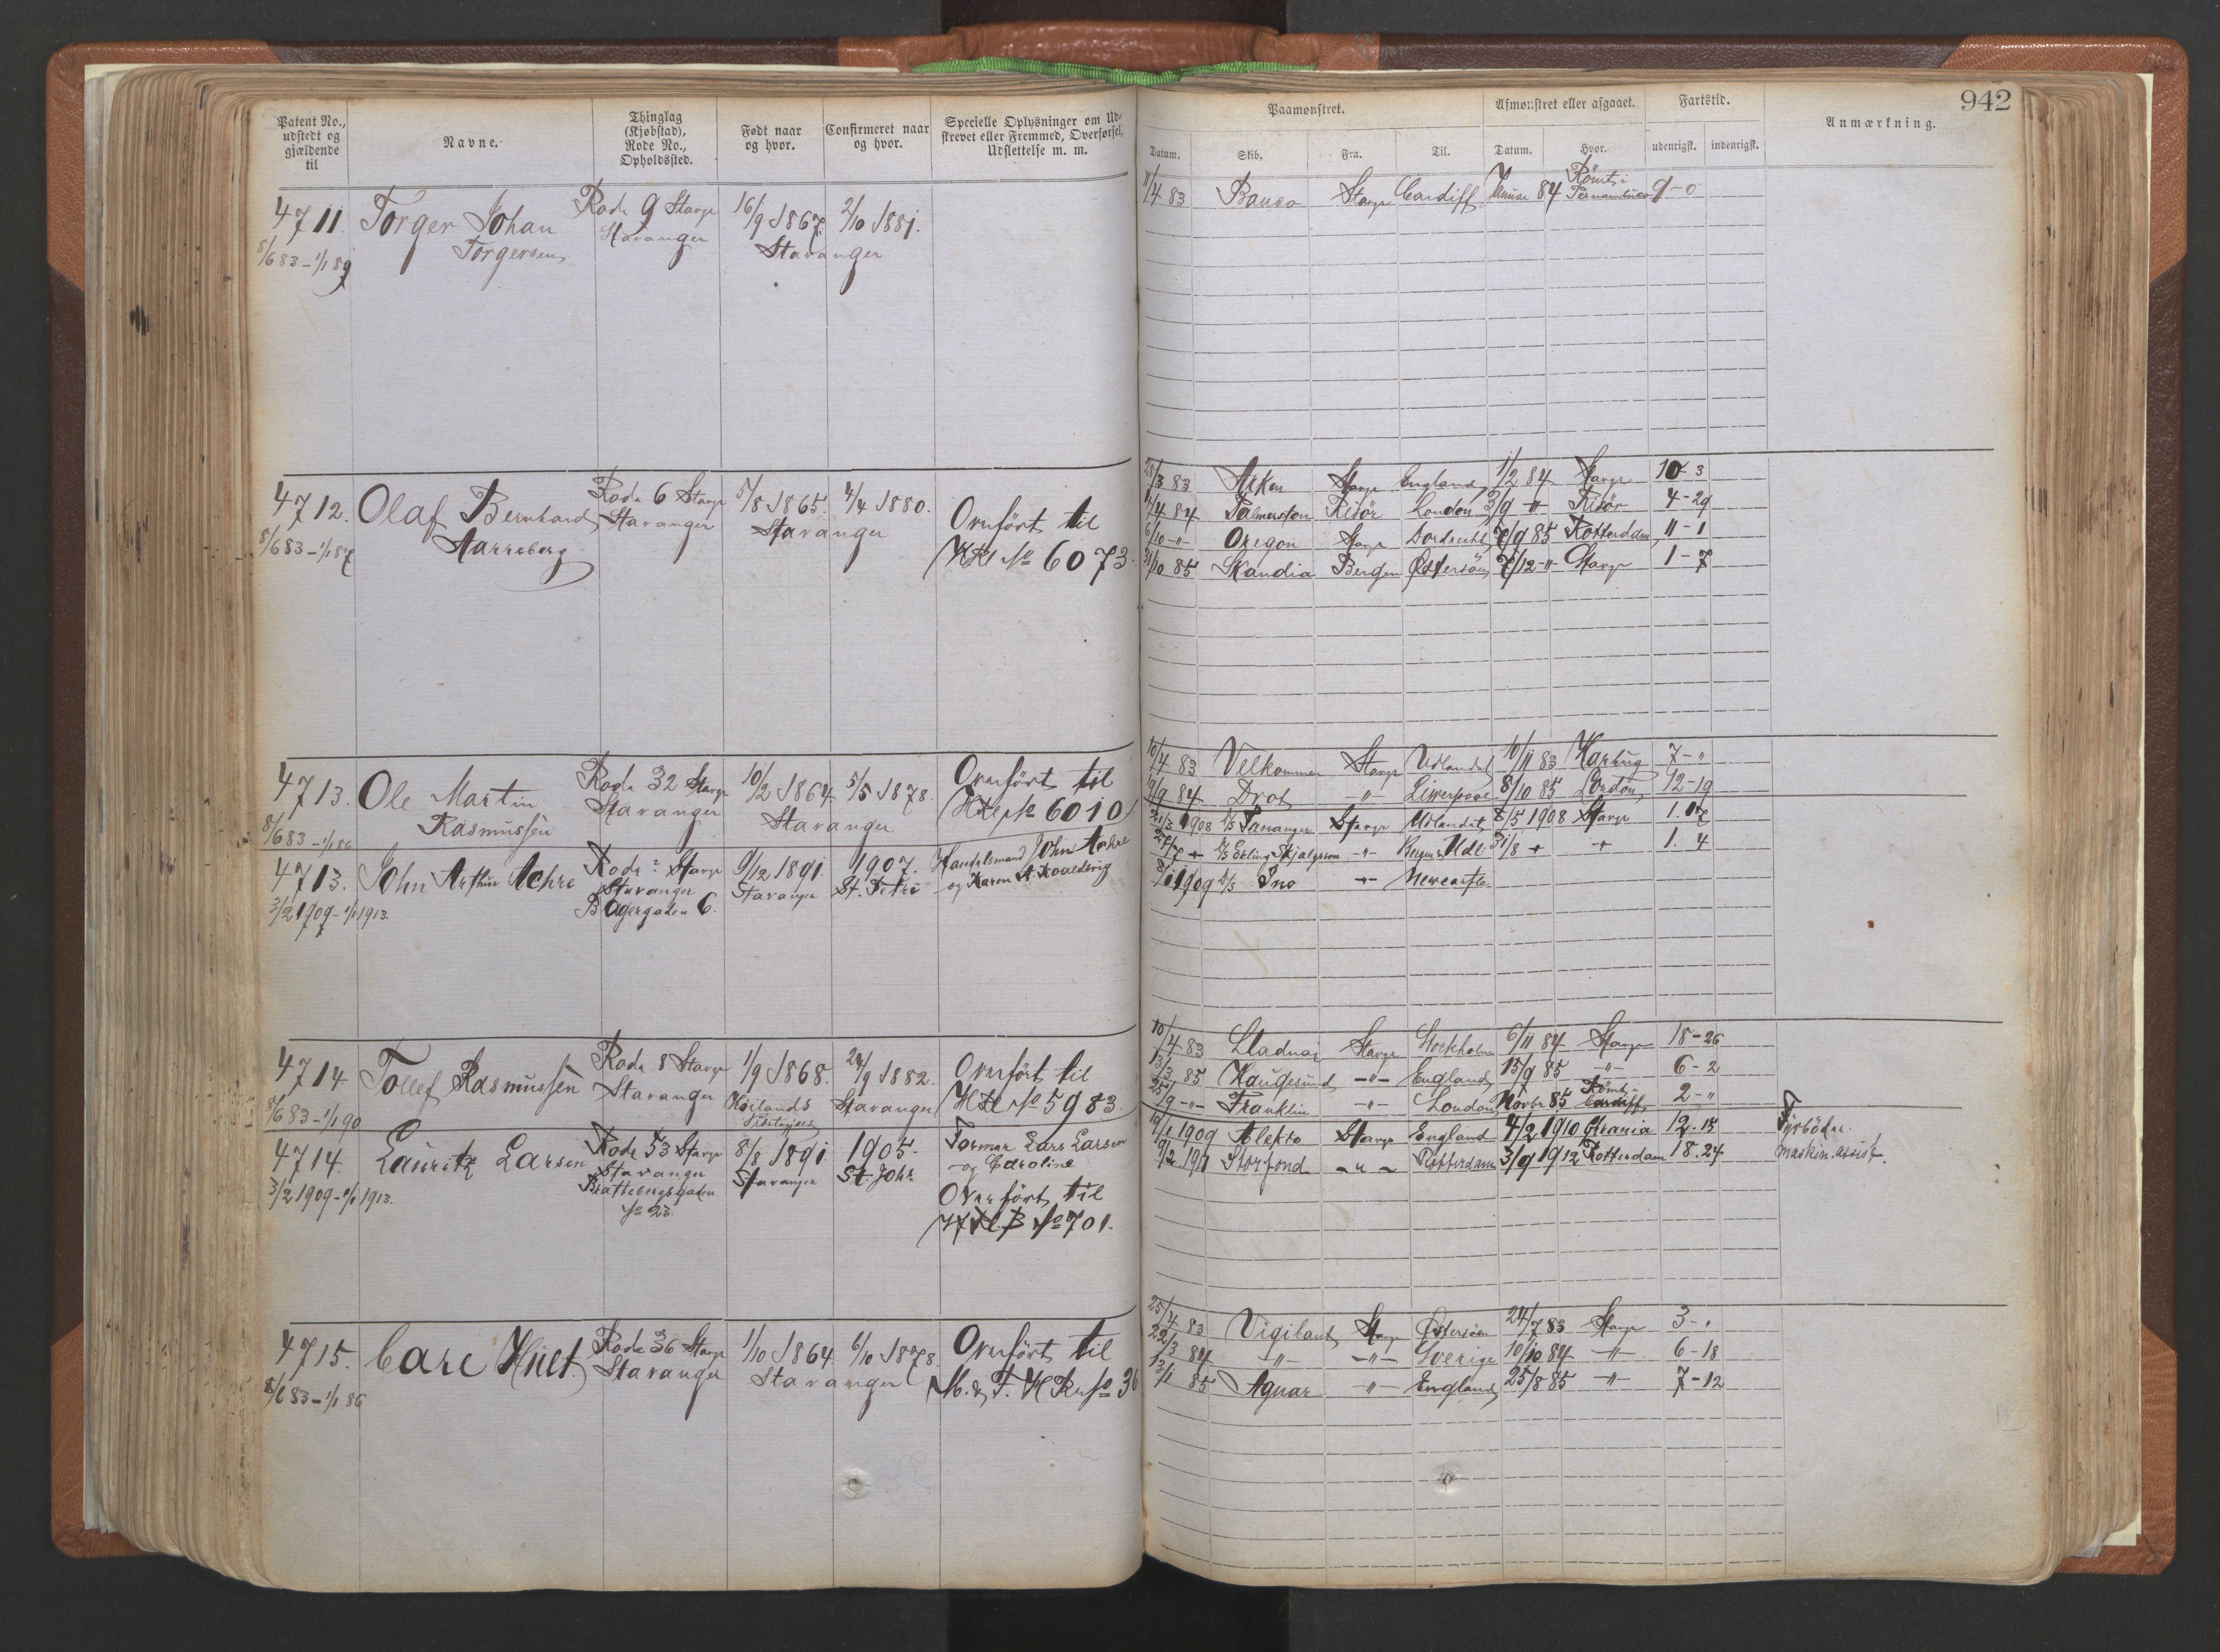 942
Patent No., udstedt og gjældende til
Navne.
Thinglag (Kjøbstad), Rode No., Opholdssted.
Født naar og hvor.
Confirmeret naar og hvor.
Specielle Oplysninger om Udskrevet eller Fremmed, Overførsel, Udslettelse m. m.
Paamønstret.
Afmønstret eller afgaaet.
Fartstid.
Anmærkning.
Datum. Skib. Fra. Til. Datum. Hvor. udenrigsk. indenrigsk.
4711. Torger Johan Rode 9 Stavgr 16/9 1867. 2/10 1881.
8/6 83 - 1/1 89 Torgersen Stavanger Stavanger
11/4 83 Stavgr Cardiff Januar 84 Rømt i Pernambuco 9 - 0
4712. Olaf Bernhard Rode 6 Stavgr 5/8 1865. 4/4 1880. Overført til
8/6 83 - 1/1 87 Aarreberg Stavanger Stavanger No 6073
28/3 83 Arken Stavgr England 1/2 84 Stavgr 10 - 3
84 Palmerston Risør London 3/9 -"- Risør 4 - 29
6/10 -"- Oregon Stavgr Dordrecht 7/9 85 Rotterdam 11 - 1
31/10 85 Skandia Bergen Østersøen 7/12 -"- Stavgr 1 - 7
4713. Ole Martin Rode 32 Stavgr 10/2 1864 5/5 1878. Overført til
8/6 83 - 1/1 86 Rasmussen Stavanger Stavanger No 6010
10/4 83 Velkommen Stavgr Udlandet 10/11 83 Harburg 7 - "
84 Drot -"- Liverpool 8/10 85 London 12 - 19
4713. John Arthur Achre Rode ? Stavgr 9/12 1891. 1907. Handelsmand John Aachre
3/2 1909 - 1/1 1913. Stavanger Bagergaden 6. Stavanger St. Petri og Karen
1908 S/S Tananger Stavgr Udlandet 8/5 1908 Stavgr 1. 17
27/7 -"- S/S Erling Skjalgsson -"- Bergen Udl. 31/8 -"- -"- 1. 4
1909 S/S Sno -"- Newcastle
4714 Tollef Rasmussen Rode 8 Stavgr 1/9 1868. 24/9 1882. Overført til
8/6 83 - 1/1 90 Stavanger Høilands Præstegjeld Stavanger No 5983.
10/4 83 Stavgr Stockholm 6/11 84 Stavgr 18 - 26
13/3 85 Haugesund -"- England 15/9 85 -"- 6 - 2
25/9 -"- Franklin -"- London Novbr 85 Rømt i Cardiff 2 - "
4714. Lauritz Larsen Rode 53 Stavgr 8/8 1891 1905. Forman Lars Larsen
3/2 1909 - 1/1 1913. Stavanger Brattebergsgaden No 23. Stavanger St. Johs og Caroline
Overført til
B No 701.
1909 Alekto Stavgr England 4/2 1910 Chrania 12. 15 Fyrbøder.
9/2 1911 Storfond -"- Rotterdam 3/9 1912 Rotterdam 18. 24 maskin.assist.
4715. Carl Hult. Rode 36 Stavgr 1/10 1864 6/10 1878. Overført til
8/6 83 - 1/1 86 Stavanger Stavanger No 36
25/4 83 Vigilant Stavgr Østersøen 24/7 83 Stavgr 3 - "
22/3 84 -"- -"- Sverige 10/10 84 -"- 6 - 18
13/1 85 Aquar -"- England 25/8 85 -"- 7 - 12